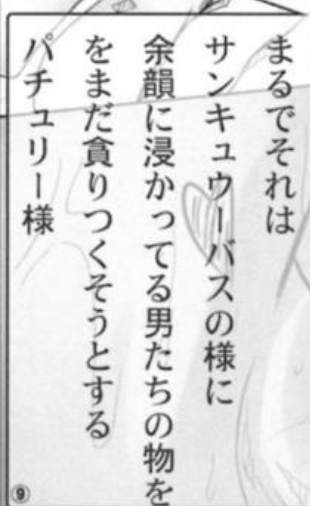 まるでそれは
サンキュウーバスの様に
余韻に浸かってる男たちの物を
をまだ貪りつくそうとする
パチュリー様
⑨